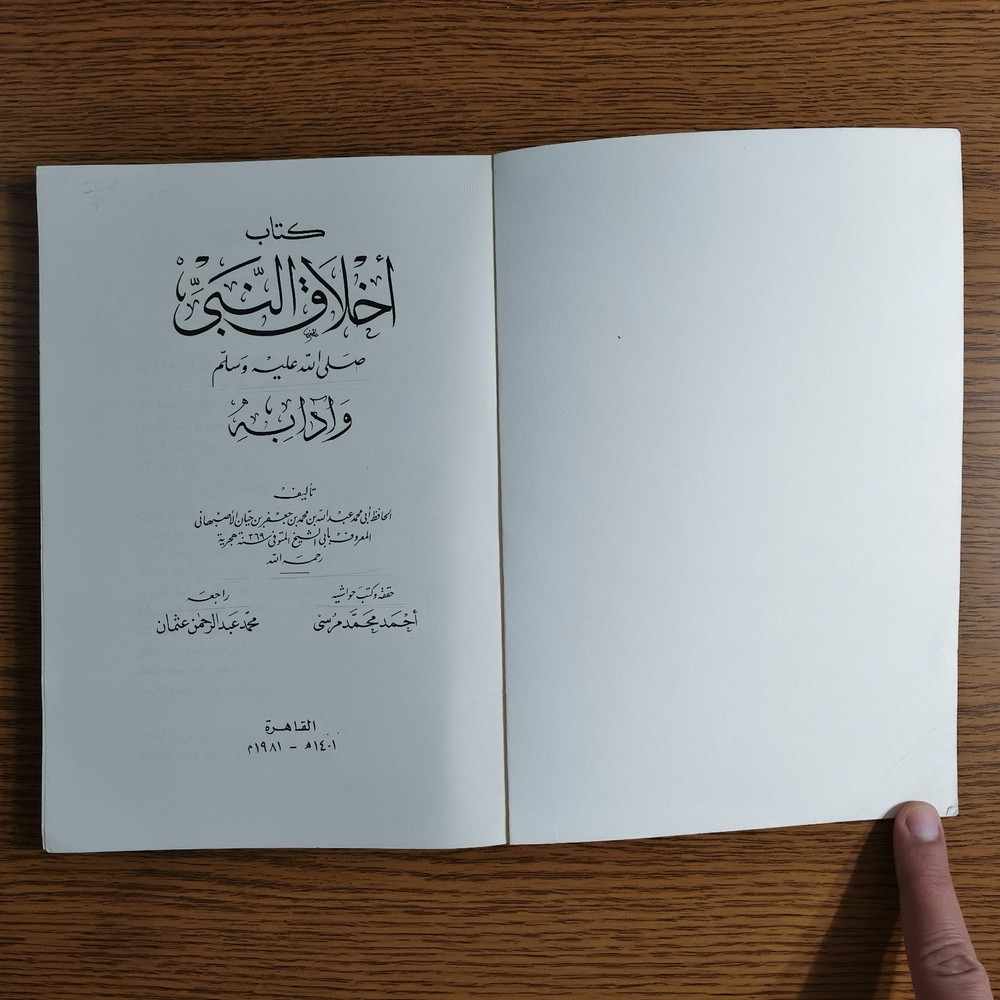 كتاب
أخلاق النبي
صلى الله عليه وسلم
وآدابه
تأليف
الحافظ أبي محمد عبد الله بن محمد بن جعفر بن حيان الأصبهاني
المعروف بأبي الشيخ المتوفى سنة ٣٦٩ هجرية
رحمه الله
حققه وكتب حواشيه
أحمد محمد مرسي
راجعه
محمد عبد الرحمن عثمان
القاهرة
١٤٠١ه - ١٩٨١م